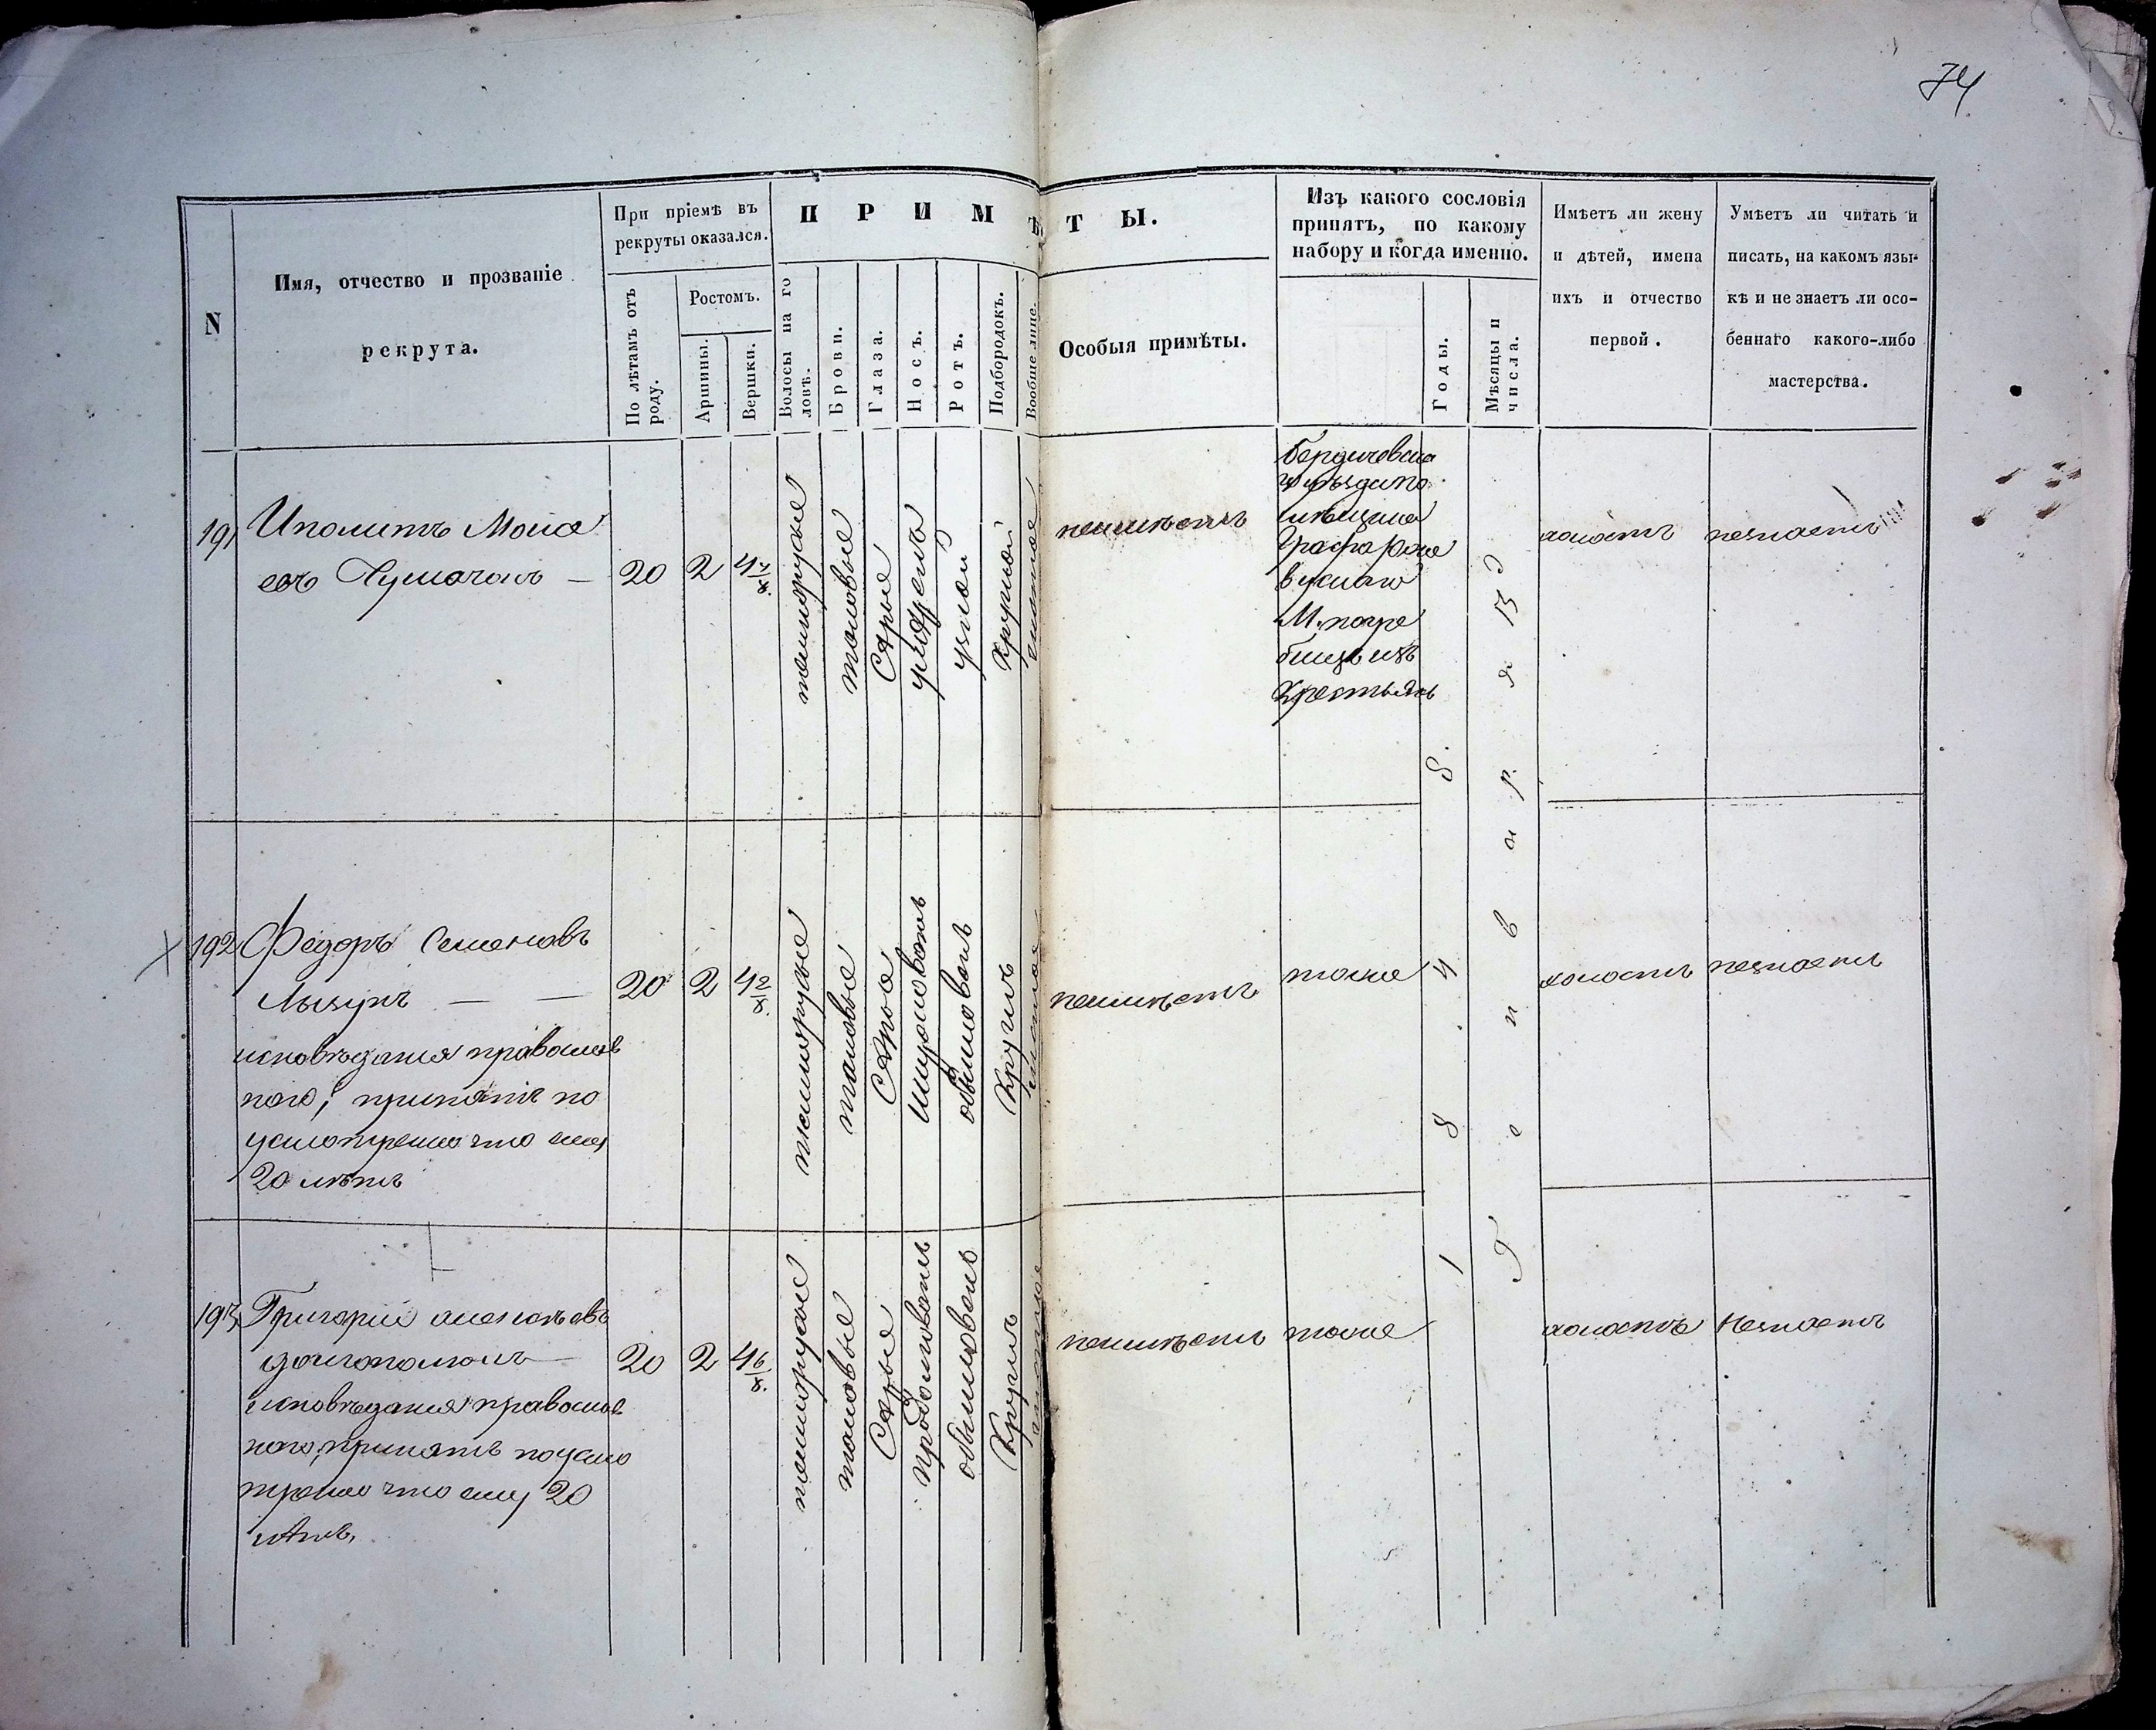 74
N
Имя, отчество и прозваніе
рекрута.
При пріемѣ въ
рекруты оказался.
По лѣтамъ отъ
роду.
Ростомъ.
Аршины.
Вершки.
ПРИМѢТЫ.
Волосы на го
ловѣ.
Брови.
Глаза.
Носъ.
Ротъ.
Подбородокъ.
Вообще лице.
Особыя примѣты.
Изъ какого сословія
принятъ, по какому
набору и когда именно.
Годы.
Мѣсяцы и
числа.
Имѣетъ ли жену
и дѣтей, имена
ихъ и отчество
первой.
Умѣетъ ли читать и
писать, на какомъ язы-
кѣ и не знаетъ ли осо-
беннаго какого-либо
мастерства.
191
Иполитъ Мойсе
евъ
20
2
4
темнорусые
таковые
Сѣрые
умѣренъ
узкій
круглой
неимѣетъ
Бердичевска
уѣзда по
мѣщика
Графа Рже
вускаго
М. погре
бищъ изъ
Крестьянъ
холостъ
незнаетъ
192
Федоръ Семеновъ
Лызунъ — —
исповѣданія православ
наго, принятъ по
усмотренію что ему
20 лѣтъ
20
2
4 2/8.
темнорусые
таковые
Сѣрые
широковатъ
обыкновенъ
Круглъ
неимѣетъ
тоже
холостъ
незнаетъ
193
Григорій
исповѣданія православ
наго, принятъ по усмо
тренію что ему 20
лѣтъ.
20
2
4 6/8.
темнорусые
таковые
Сѣрые
продолговатъ
обыкновенъ
Круглъ
неимѣетъ
тоже
холостъ
Незнаетъ
Генваря